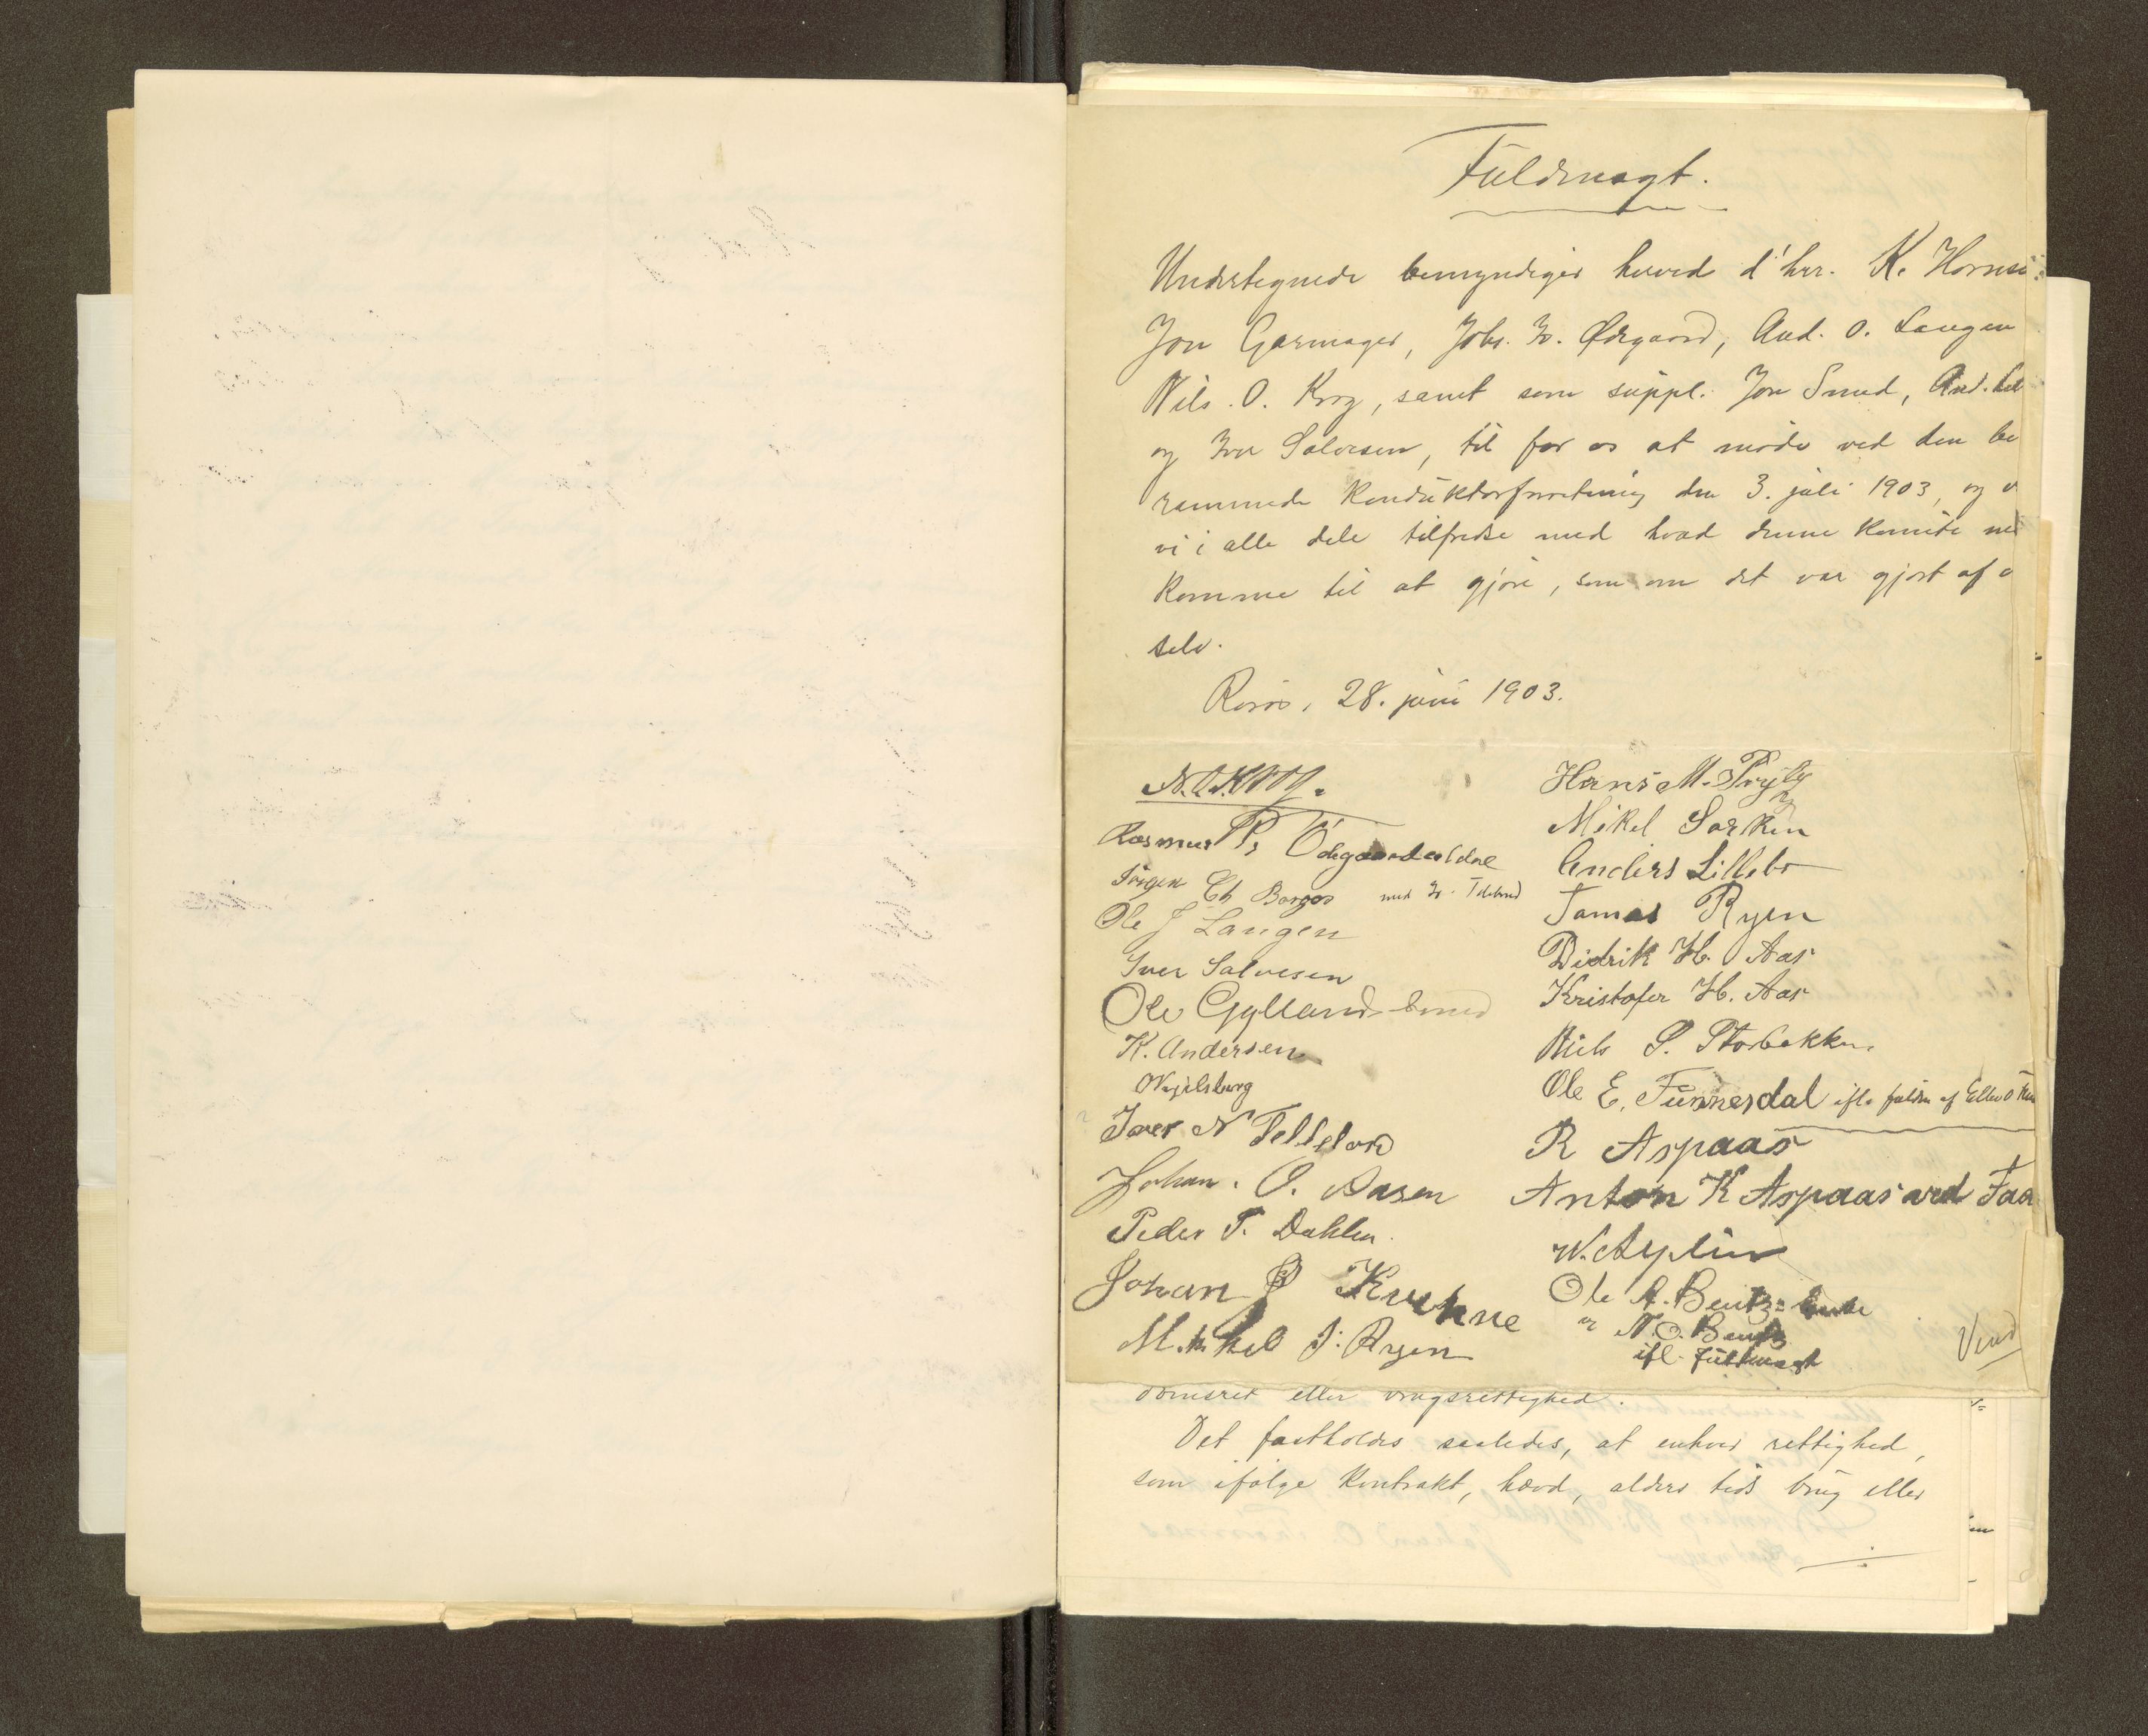 Fuldmagt.
Undertegnede bemyndiger herved d'hrr. K. Horns
Jon Garmager, Johs. Iv. Ødegaard, And. O. Langen
Nils O. Krog, samt som suppl. Jon Smed, And.
og Iver Salvesen, til for os at møde ved den be
rammede konduktørforretning den 3. juli 1903, og
vi i alle dele tilfredse med hvad denne komite
komme til at gjøre, som om det var gjort af
selv.
Røros, 28. juni 1903.
N.O. Krog.
Rasmus P. Ödegaard
Jörgen Ch Borgos
Ole J Langen
Iver Salvesen
Ole Gylland
K. Andersen
Iver N
Johan. O. Aasen
Peder T. Dahlen.
Johan P Kuhne
Mikkel J. Ryen
Hans M. Pryty
Mikel Sorken
Anders Lillebo
Tamas Ryen
Didrik H. Aas
Kristofer H. Aas
Niels S. Storbekken.
Ole E. Tunnesdal
R Aspaas
Anton K Aspaas ved
W. Asplin
Ole A. Bentz
N. O. Bentz
ifl. fuldmagt
Vend
eller brugsrettighed.
Det fastholdes saaledes, at enhver rettighed,
som ifølge kontrakt, hævd, alders tids brug eller